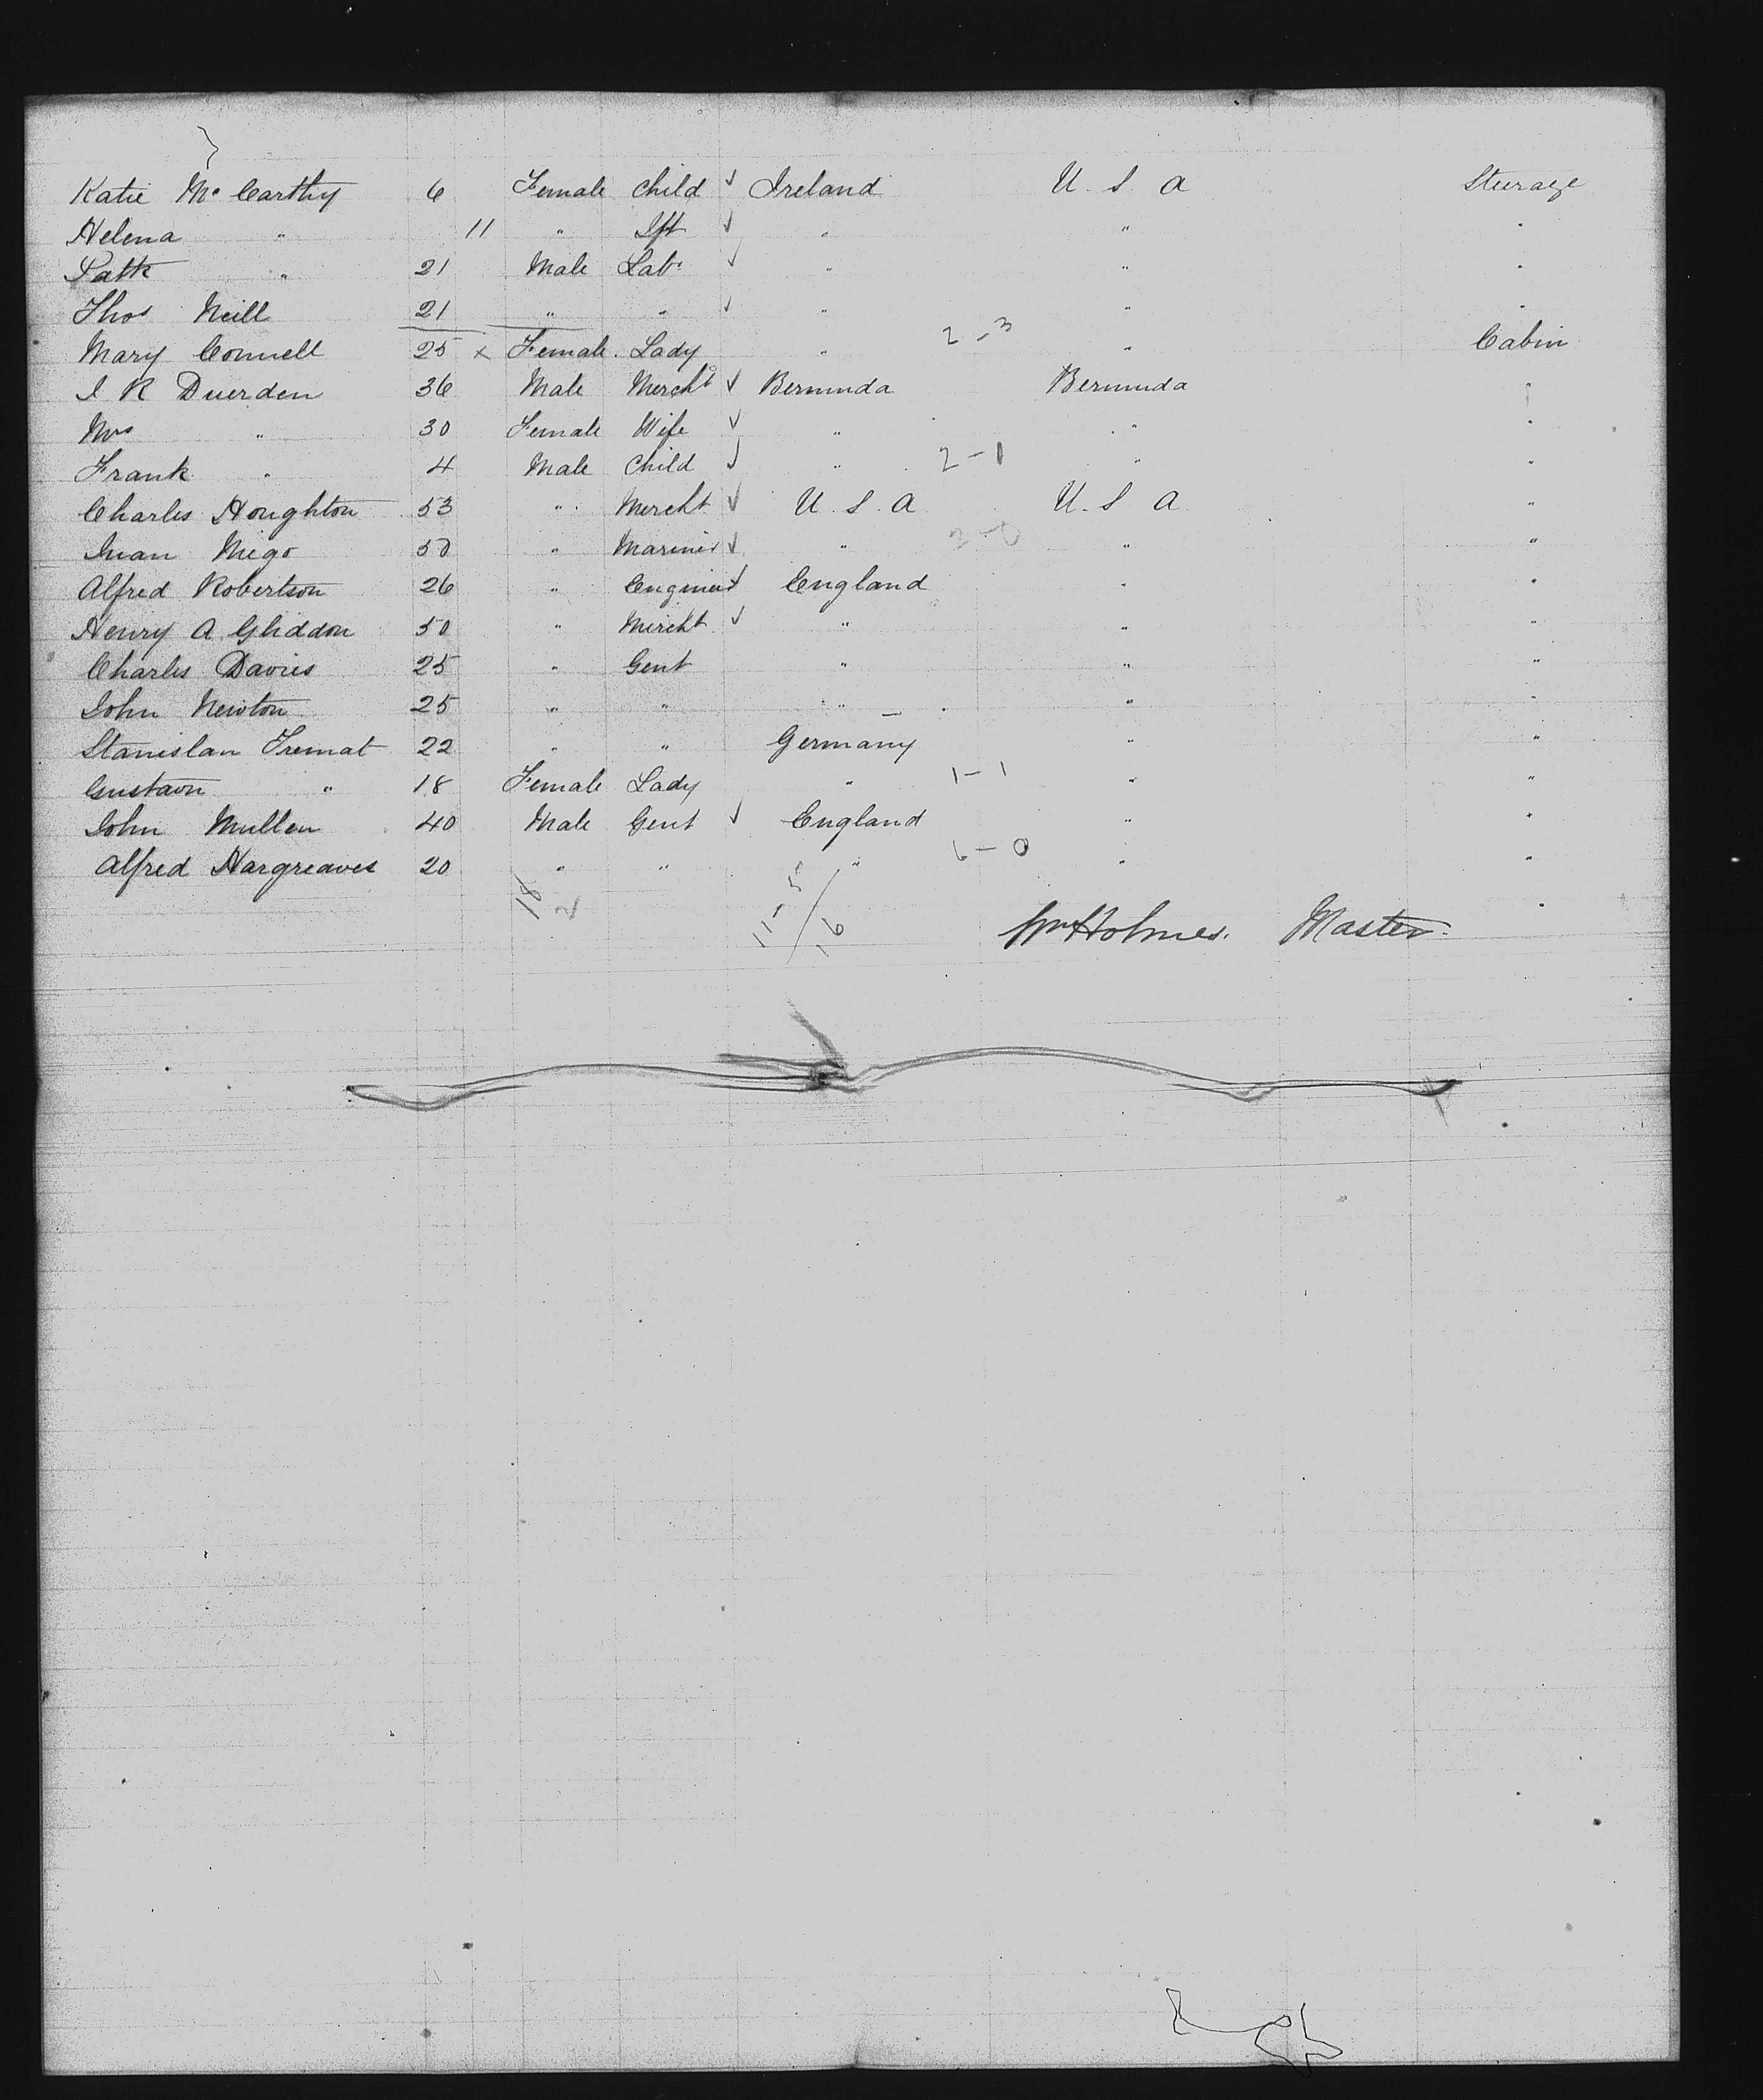 Katie Mc Carthy 6 Female Child ✓ Ireland U. S. A Steerage
Helena " 11 " Ift ✓ " " "
Patk " 21 Male Labr ✓ " " "
Thos Neill 21 " " ✓ " " "
Mary Connell 25 x Female. Lady " 2-3 " Cabin
I R Duerden 36 Male Mercht ✓ Bermuda Bermuda "
Mrs " 30 Female Wife ✓ " " "
Frank " 4 Male Child ✓ " 2-1 " "
Charles Houghton 53 " Mercht ✓ U. S. A U. S. A "
Juan Migo 50 " Mariner ✓ " 2-0 " "
Alfred Robertson 26 " Engineer ✓ England " "
Henry A Gliddon 50 " Mercht ✓ " " "
Charles Davies 25 " Gent " " "
John Newton 25 " " " " "
Stanislan Fremat 22 " " Germany " "
Gustavn " 18 Female Lady " 1-1 " "
John Mullen 40 Male Gent ✓ England " "
Alfred Hargreaves 20 " " " 6-0 " "
18 2 11-5 / 16
Wm Holmes. Master.